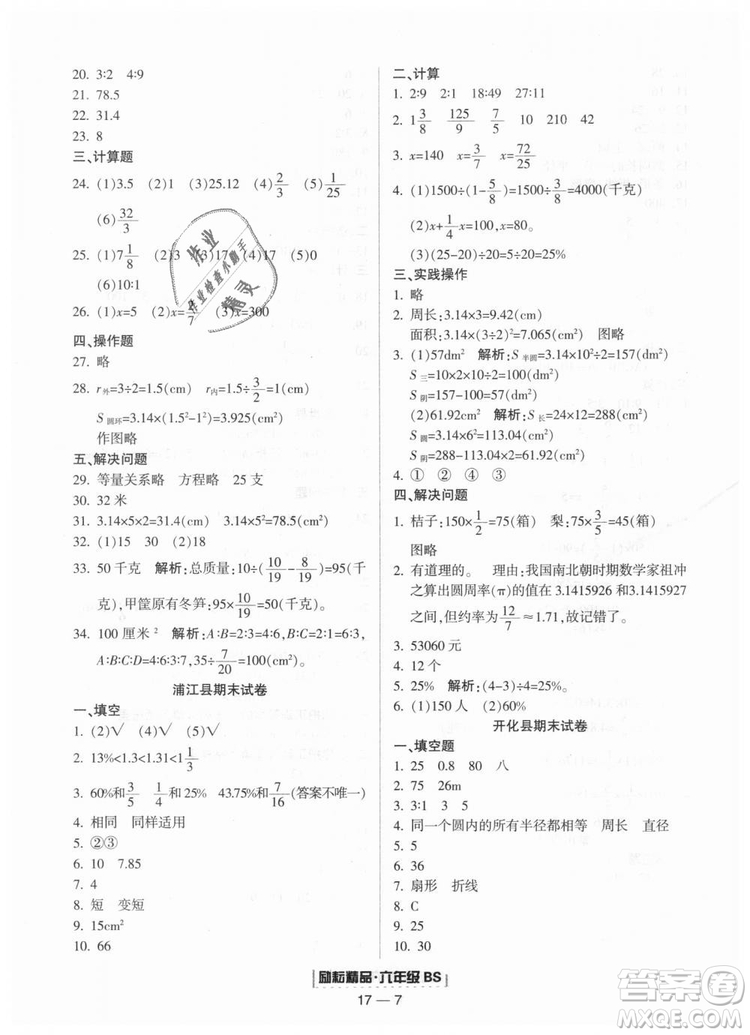 20. 3∶2　4∶9
21. 78.5
22. 31.4
23. 8
三、计算题
24. (1)3.5　(2)1　(3)25.12　(4)2/3　(5)
(6)32/3
25. (1)7 1/8　(2)3　(4)17　(5)0
(6)10∶1
26. (1)x=5　(2)x=　(3)x=300
四、操作题
27. 略
28. r外=3÷2=1.5(cm)　r内=1.5÷3/2=1(cm)
S圆环=3.14×(1.5²-1²)=3.925(cm²)
作图略
五、解决问题
29. 等量关系略　方程略　25 支
30. 32 米
31. 3.14×5×2=31.4(cm)　3.14×5²=78.5(cm²)
32. (1)15　30　(2)18
33. 50 千克　解析:总质量:10÷(10/19-8/19)=95(千
克),甲筐原有冬笋:95×10/19=50(千克)。
34. 100 厘米²　解析:A∶B=2∶3=4∶6,B∶C=6∶3,
A∶B∶C∶D=4∶6∶3∶7,35÷7/20=100(cm²)
浦江县期末试卷
一、填空
1. (2)√　(4)√　(5)√
2. 13%<1.3<1.31<1 1/3
3. 60%和3/5　1/4和25%　43.75%和7/16(答案不唯一)
4. 相同　同样适用
5. ②③
6. 10　7.85
7. 4
8. 短　变短
9. 15cm²
10. 66
二、计算
1. 2∶9　2∶1　18∶49　27∶11
2. 1 3/8　125/9　7/5　10　210　42
3. x=140　x=72/5　x=75/4
4. (1)1500÷(1-5/8)=1500÷3/8=4000(千克)
(2)x+1/4x=100,x=80。
(3)(25-20)÷20=25%
三、实践操作
1. 略
2. 周长:3.14×3=9.42(cm)
面积:3.14×(3÷2)²=7.065(cm²)　图略
3. (1)57dm²　解析:S半圆=3.14×10²÷2=157(cm²)
S三=10×2×10÷2=100(cm²)
S阴=157-100=57(cm²)
(2)61.92cm²　解析:S长=24×12=288(cm²)
S圆=3.14×6²=113.04(cm²)
S阴=288-113.04-113.04=61.92(cm²)
4. ①　②　④　③
四、解决问题
1. 桔子:150×1/2=75(箱)　梨:75×3/5=45(箱)
图略
2. 有道理的。　理由:我国南北朝时期数学家祖冲
之算出圆周率(π)的值在 3.1415926 和 3.1415927
之间,但约率为12/7≈1.71,故记错了。
3. 53060 元
4. 12 个
5. 25%　解析:(4-3)÷4=25%。
6. (1)150 人　(2)60%
开化县期末试卷
一、填空题
1. 25　0.8　80　八
2. 75　26m
3. 3∶1　3　5
4. 同一个圆内的所有半径都相等　周长　直径
5. 5
6. 36
7. 扇形　折线
8. C
9. 5
10. 30
励耘精品·六年级 BS
17 — 7
作业
作业检查小助手
精灵
MXQE.COM